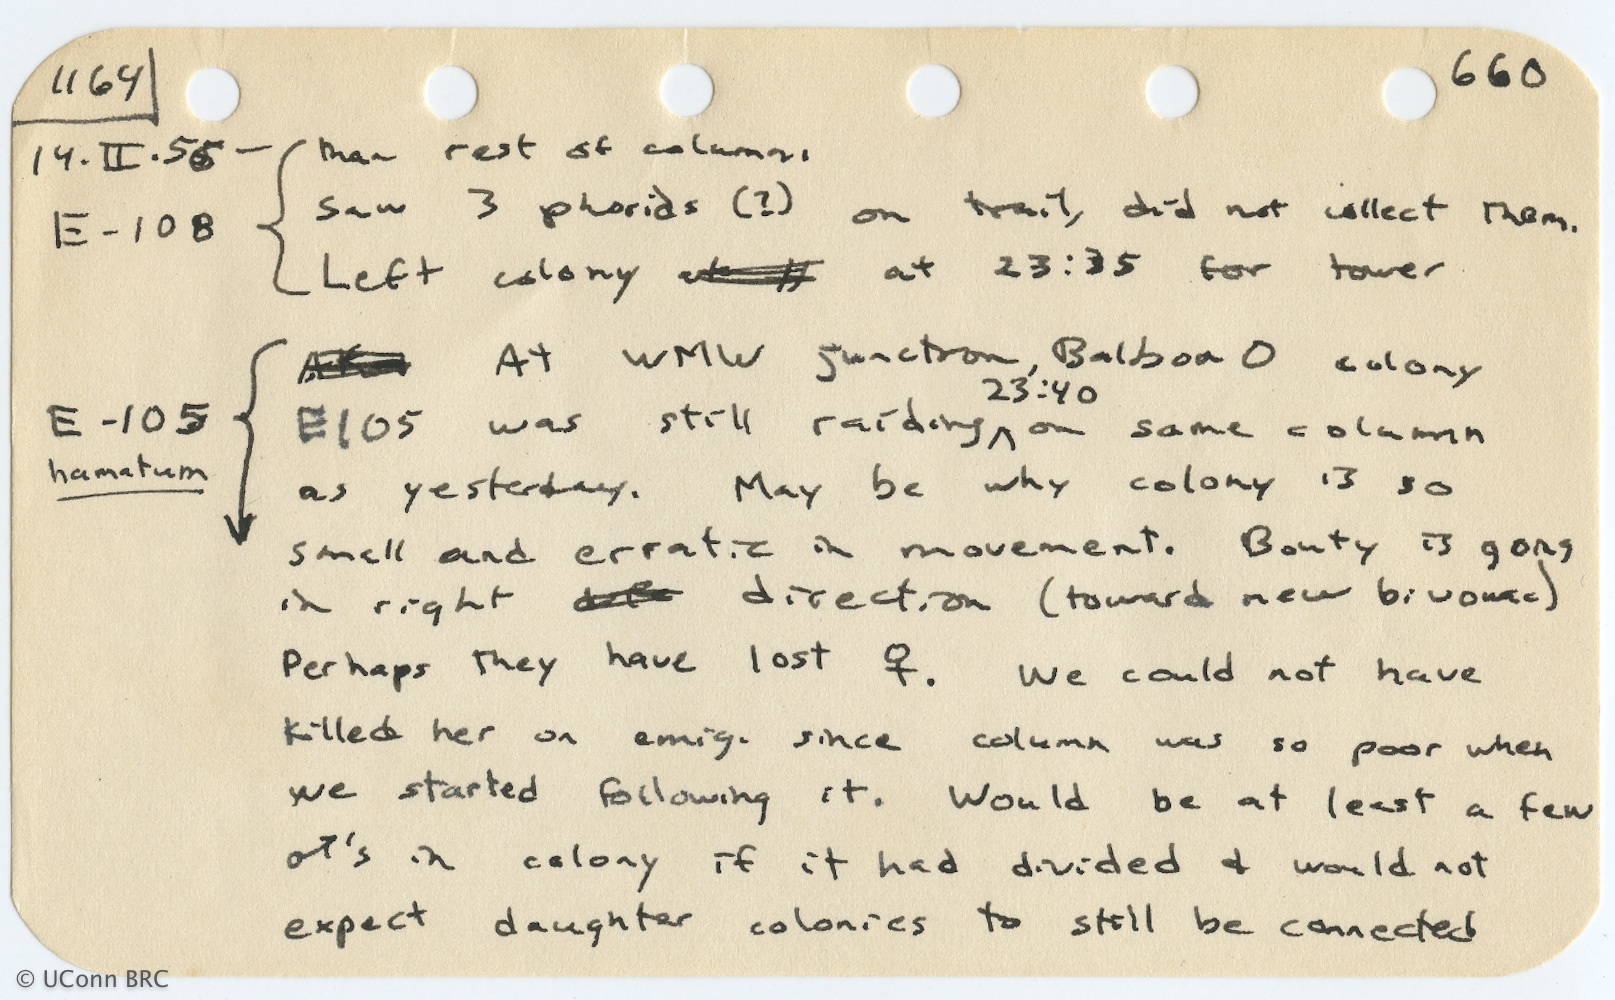 1164
660
14.II.56 — than rest of column.
E-108 Saw 3 phorids (?) on trail, did not collect them.
Left colony at 23:35 for tower
At WMW junction, Balboa O colony
23:40
E-105 E105 was still raiding ^ on same column
hamatum as yesterday. May be why colony is so
small and erratic in movement. Bouty is going
in right direction (toward new bivouac)
Perhaps they have lost ♀. We could not have
killed her on emig. since column was so poor when
we started following it. Would be at least a few
♂'s in colony if it had divided & would not
expect daughter colonies to still be connected
© UConn BRC